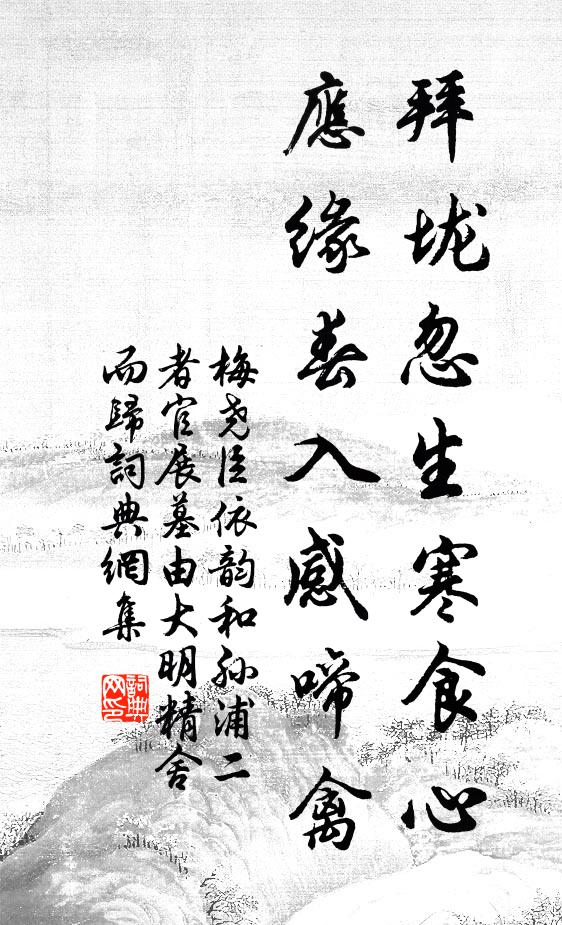 拜垅忽生寒食心
應緣春入感啼禽
梅尧臣依韵和孙浦二
者官展墓由大明精舍
而歸詞典網集
詞典网印